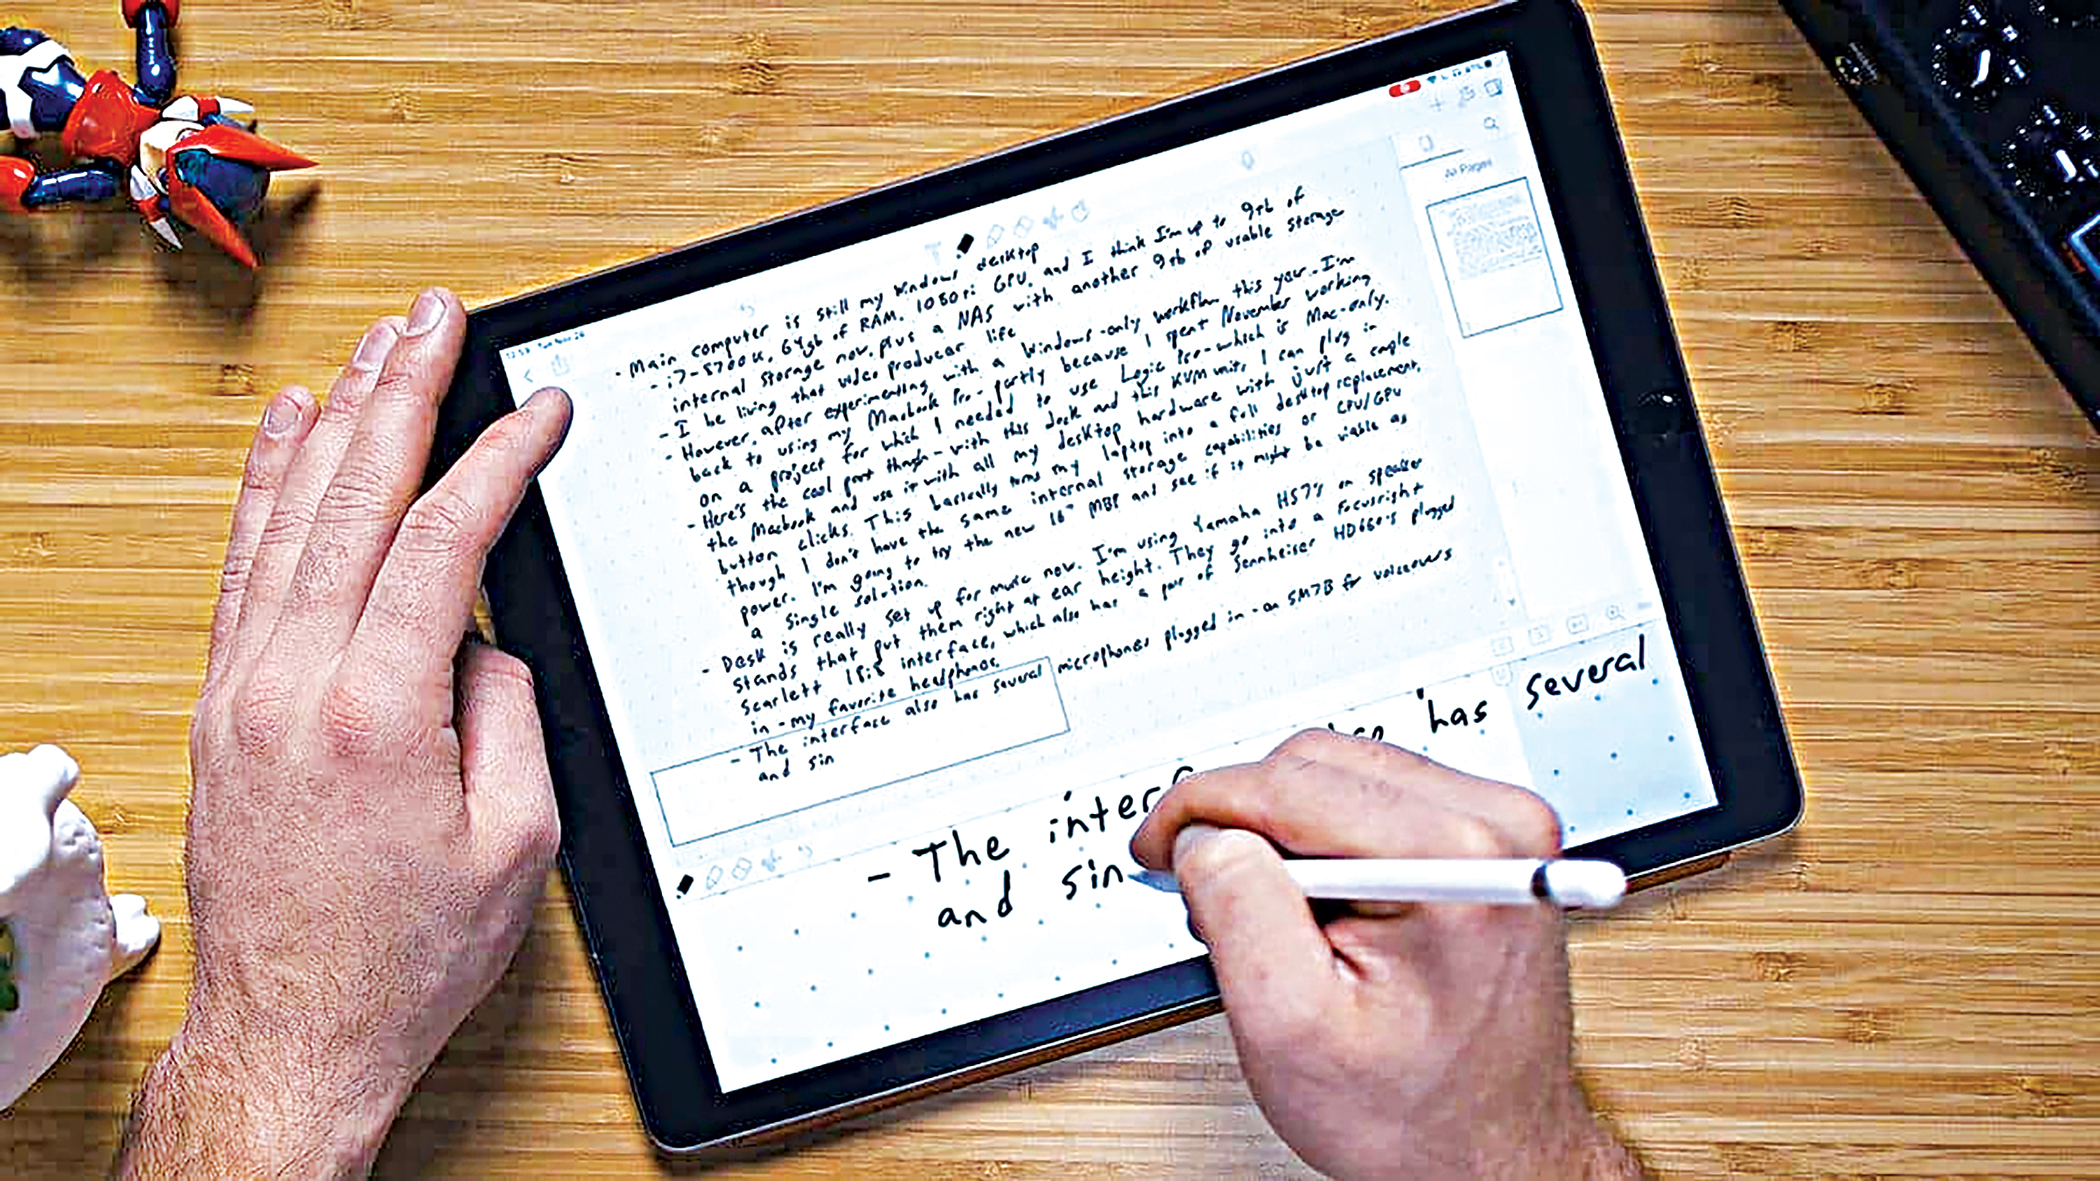 12:58 Tue Nov 26
All Pages
- Main computer is still my Windows desktop
- i7-8700K, 64gb of RAM, 1080ti GPU, and I think I'm up to 9tb of
internal storage now, plus a NAS with another 9tb of usable storage
- I be living that video producer life
- However, after experimenting with a Windows-only workflow this year, I'm
back to using my Macbook Pro - partly because I spent November working
on a project for which I needed to use Logic Pro - which is Mac-only.
- Here's the cool part though - with this dock and this KVM unit, I can plug in
the Macbook and use it with all my desktop hardware with just a couple
button clicks. This basically turns my laptop into a full desktop replacement,
though I don't have the same internal storage capabilities or CPU/GPU
power. I'm going to try the new 16" MBP and see if it might be viable as
a single solution.
- Desk is really set up for music now. I'm using Yamaha HS7's on speaker
stands that put them right at ear height. They go into a Focusright
Scarlett 18i8 interface, which also has a pair of Sennheiser HD660's plugged
in - my favorite headphones.
- The interface also has several microphones plugged in - an SM7B for voiceovers
and sin
- The interf has several
and sin